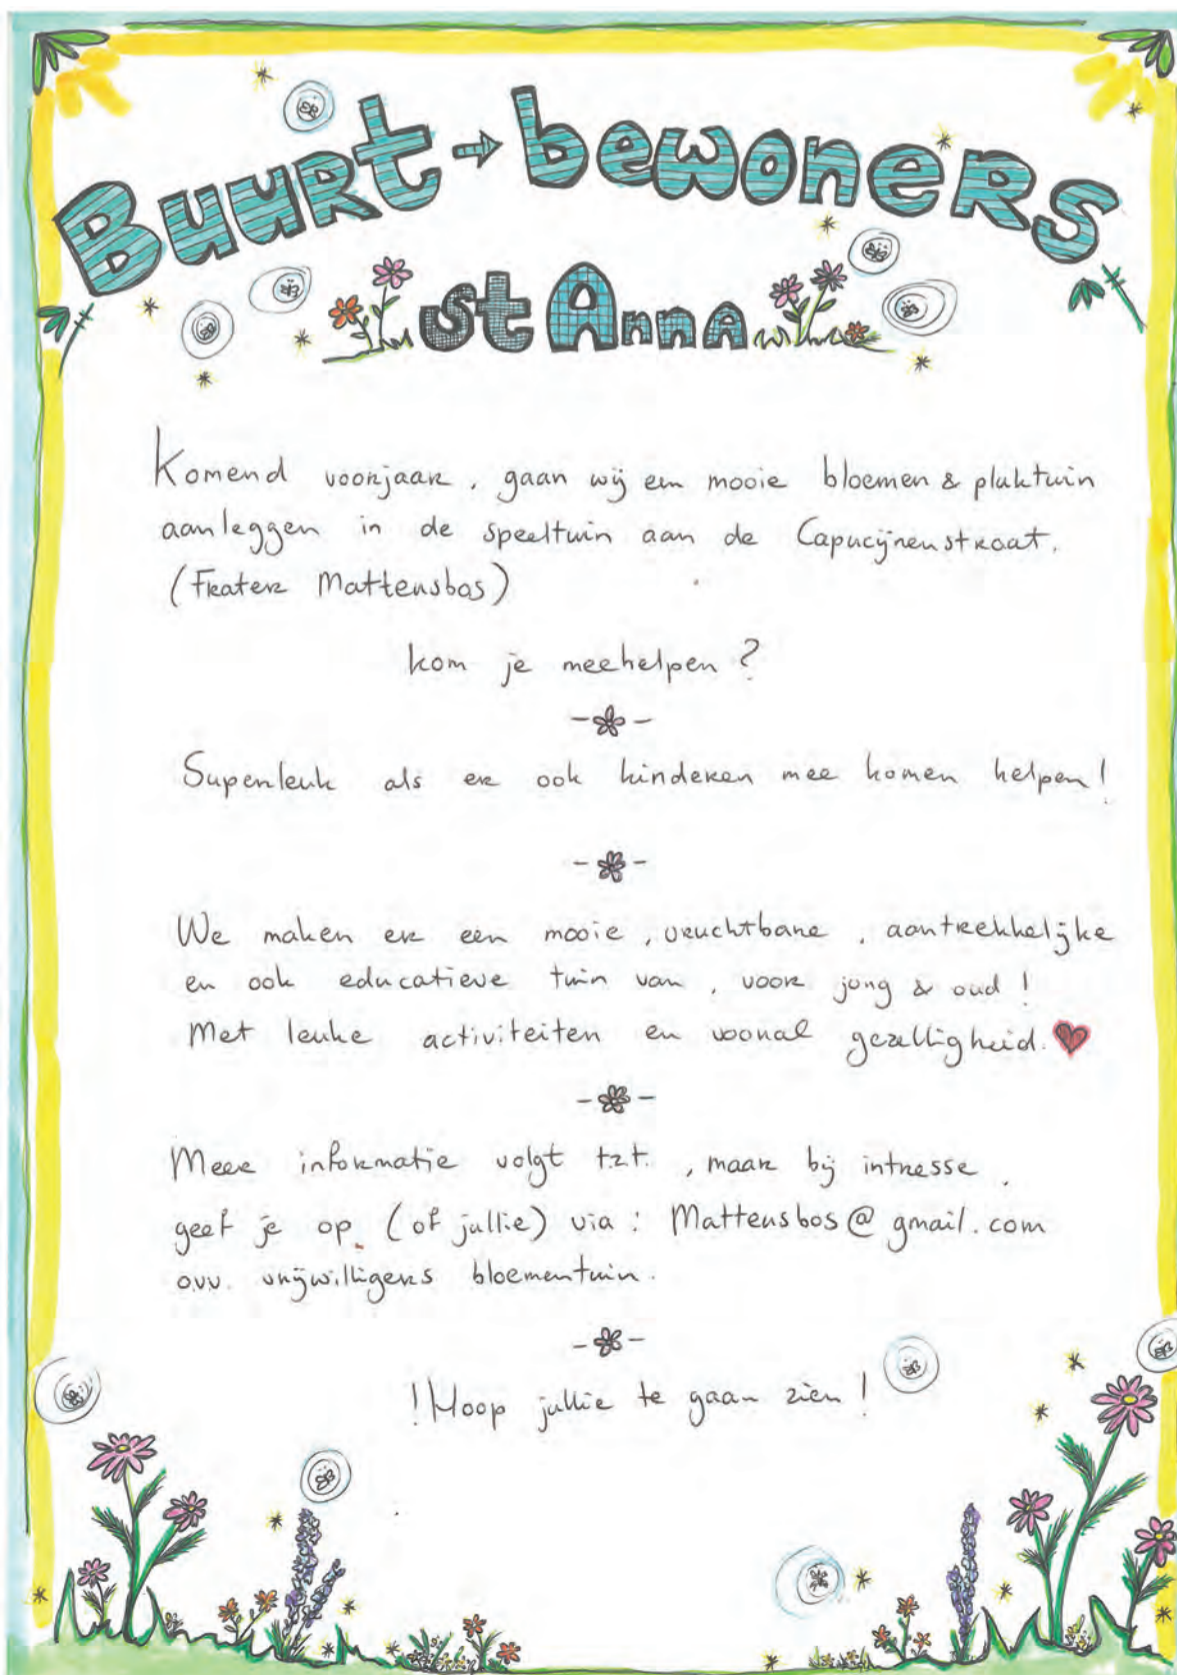 Buurt → bewoners
st Anna
Komend voorjaar, gaan wij een mooie bloemen & pluktuin
aanleggen in de speeltuin aan de Capucijnenstraat.
(Frater Mattensbos)
kom je meehelpen?
Superleuk als er ook kinderen mee komen helpen!
We maken er een mooie, vruchtbare, aantrekkelijke
en ook educatieve tuin van, voor jong & oud!
Met leuke activiteiten en vooral gezelligheid.
Meer informatie volgt t.z.t., maar bij intresse,
geef je op. (of jullie) via: Mattensbos@gmail.com
o.v.v. vrijwilligers bloementuin.
!Hoop jullie te gaan zien!